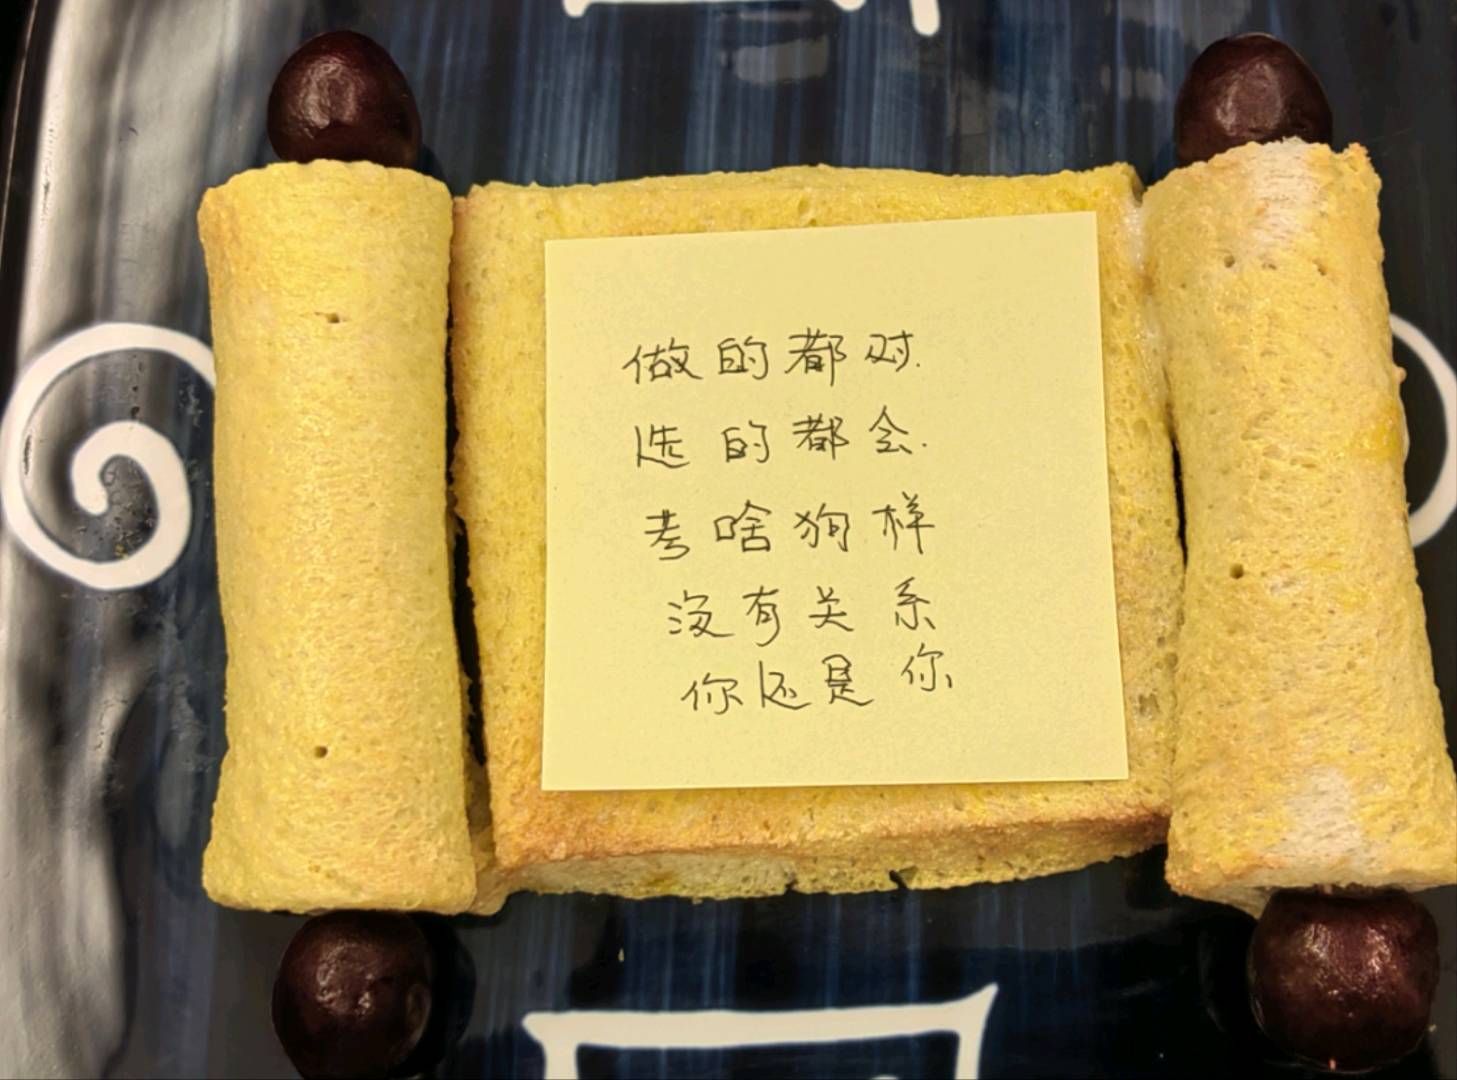 做的都对.
选的都会.
考啥狗样
没有关系
你还是你